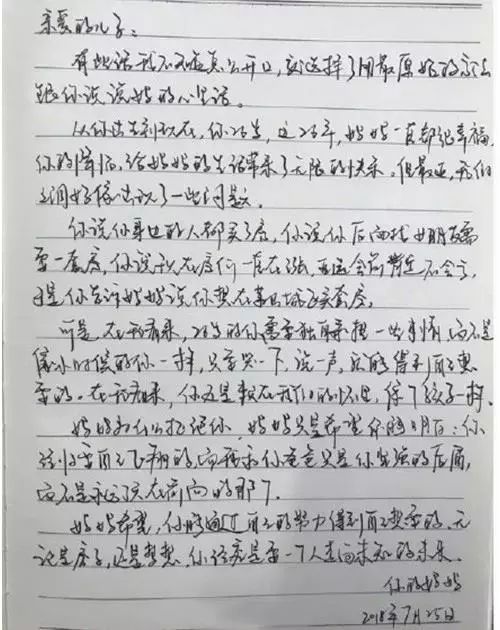 亲爱的儿子:
有些话我不知道怎么开口,就选择了用最原始的方法
跟你说说妈妈的心里话。
从你出生到现在,你26岁,这26年,妈妈一直都很幸福,
你的降临,给妈妈的生活带来了无限的快乐。但最近,我们
之间好像出现了一些问题。
你说你身边的人都买了房,你说你后面找女朋友需
要一套房,你说现在房价一直在涨,
于是你告诉妈妈说你想在某城买套房。
可是,在我看来,26岁的你需要独自承担一些事情,而不是
像小时候的你一样,只要哭一下,说一声,就能得到自己想
要的。在我看来,你还是躲在我们的怀里,像个孩子一样。
妈妈为什么拒绝你,妈妈只是希望你能明白:你
终归要自己飞翔的,而我和你爸爸只是你坚强的后盾,
而不是永远顶在前面的那个。
妈妈希望,你能通过自己的努力得到自己想要的,无
论是房子,还是梦想,你终究是要一个人走向未知的未来。
你的妈妈
2018年7月25日